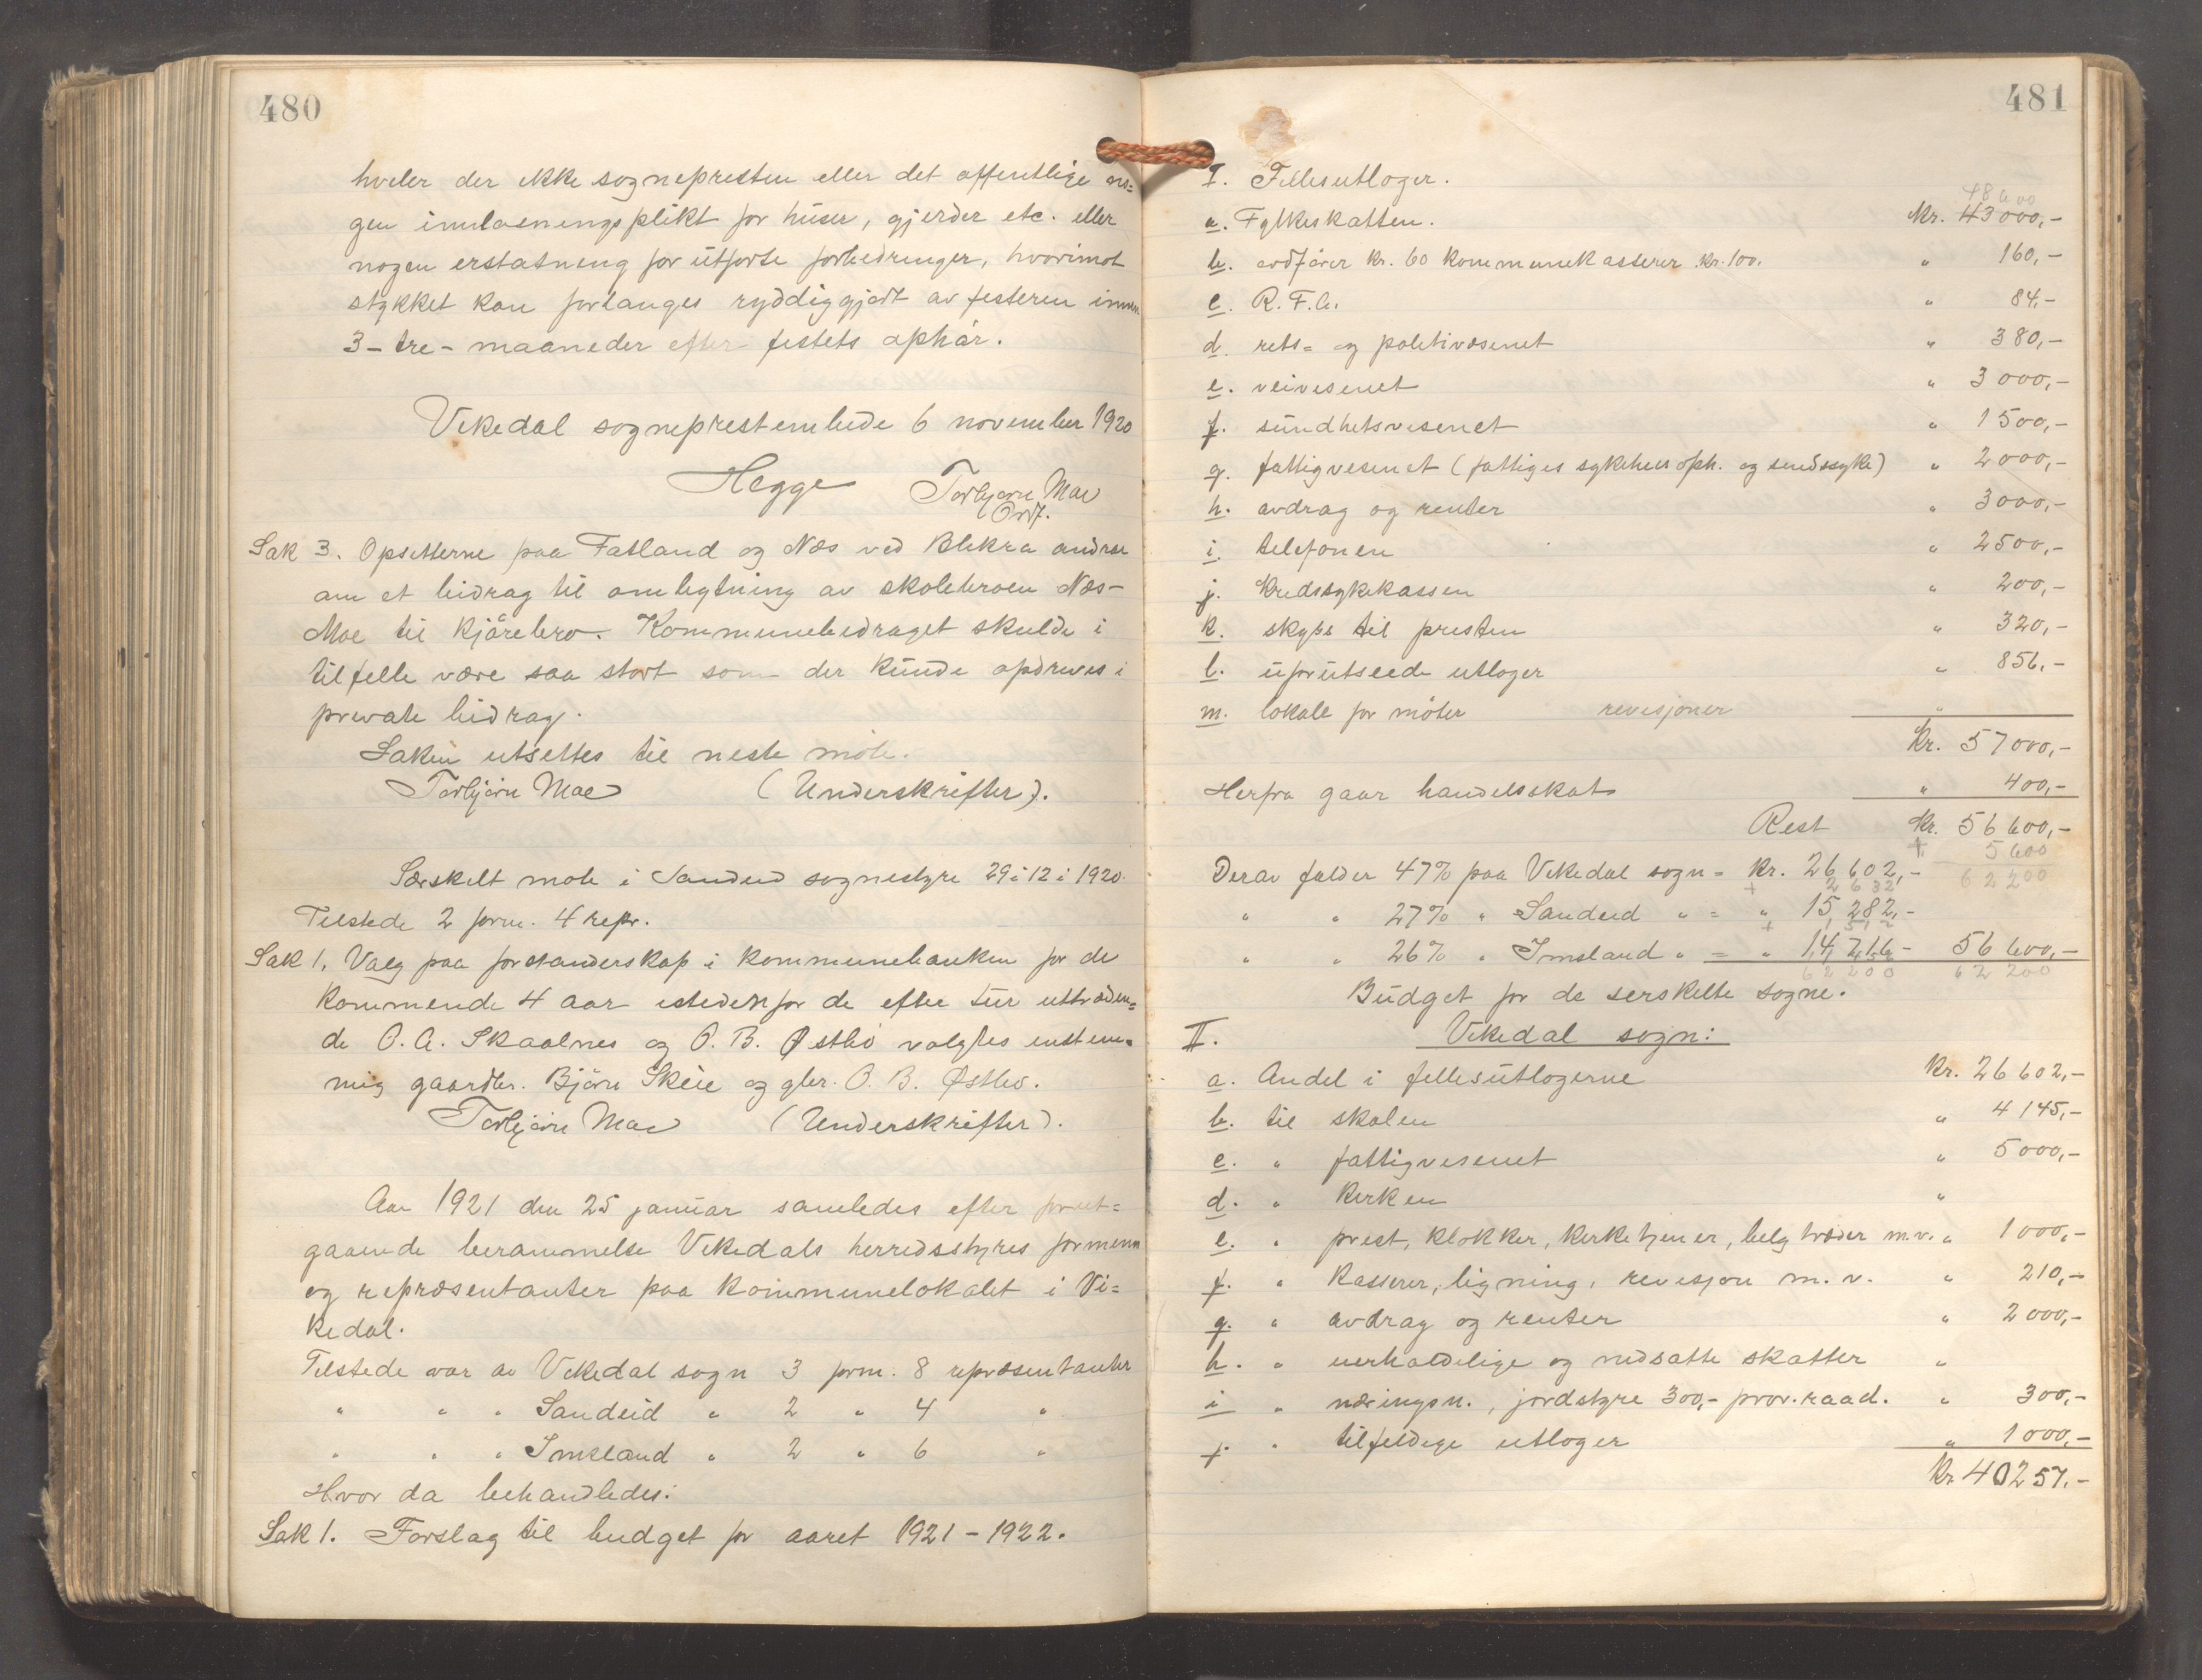 480
hviler der ikke sognepresten eller det offentlige no=
gen innløsningsplikt for huser, gjerder etc. eller
nogen erstatning for utførte forbedringer, hvorimot
stykket kan forlanges ryddiggjort av festeren innen
3 - tre - maaneder efter festets ophør.
Vikedal sogneprestembede 6 november 1920
Hegge Torbjørn Moe
Ordf.
Sak 3. Opsitterne paa Fatland og Næs ved Blikra andrar
om et bidrag til ombygtning av skolebroen Næs-
Moe til kjørebro. Kommunebidraget skulde i
tilfelle være saa stort som der kunde opdrives i
private bidrag.
Saken utsettes til neste møte.
Torbjørn Moe (Underskrifter).
Særskilt møte i Sandeid sognestyre 29 i 12 i 1920.
Tilstede 2 form. 4 repr.
Sak 1. Valg paa forstanderskap i kommunebanken for de
kommende 4 aar istedenfor de efter tur uttræden=
de O. A. Skaalnes og O. B. Østbø valgtes enstem=
mig gaardbr. Bjørn Skeie og gbr. O. B. Østbø.
Torbjørn Moe (Underskrifter).
Aar 1921 den 25 januar samledes efter forut=
gaaende berammelse Vikedals herredsstyres formenn
og repræsentanter paa kommunelokalet i Vi=
kedal.
Tilstede var av Vikedal sogn 3 form. 8 repræsentanter
" " " Sandeid " 2 " 4 "
" " " Imsland " 2 " 6 "
Hvor da behandledes:
Sak 1. Forslag til budget for aaret 1921 - 1922.
481
I. Fellesutloger.
48600
a. Fylkeskatten. Kr. 43000,-
b. ordfører kr. 60 kommunekasserer kr. 100. " 160,-
c. R. F. A. " 84,-
d. rets= og politivæsenet " 380,-
e. veivesenet " 3000,-
f. sundhetsvesenet " 1500,-
g. fattigvesenet (fattiges sykehusoph. og sindssyke) " 2000,-
h. avdrag og renter " 3000,-
i. telefonen " 2500,-
j. kredssykekassen " 200,-
k. skyss til presten " 320,-
l. uforutseede utloger " 856,-
m. lokale for møter revisjoner "
Kr. 57000,-
Herfra gaar handelsskat " 400,-
Rest Kr. 56600,-
+ 5600
Derav falder 47% paa Vikedal sogn = Kr. 26602,- 62200
+ 2632
" " 27% " Sandeid " = " 15282,-
+ 1512
" " 26% " Imsland " = " 14716- 56600,-
62200 62200
Budget for de serskilte sogne.
II. Vikedal sogn:
a. Andel i fellesutlogerne Kr. 26602,-
b. til skolen " 4145,-
c. " fattigvesenet " 5000,-
d. " kirken "
e. " prest, klokker, kirketjener, belgtræder m.v. " 1000,-
f. " kasserer, ligning, revisjon m. v. " 210,-
g. " avdrag og renter " 2000,-
h. " uerholdelige og nedsatte skatter "
i " næringsn., jordstyre 300,- prov.raad. " 300,-
j. " tilfeldige utloger " 1000,-
Kr 40257,-